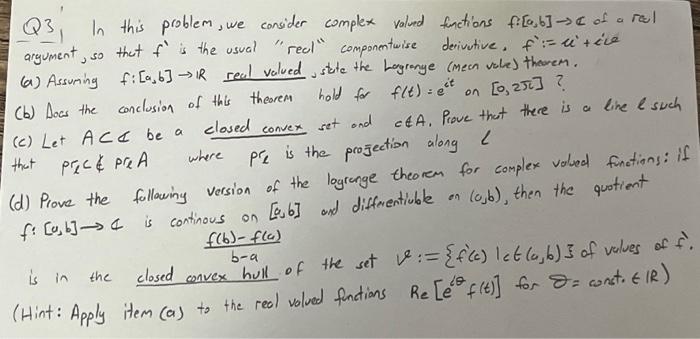 Q3, In this problem, we consider complex valued functions f:[a,b]→ℂ of a real
argument, so that f' is the usual "real" componentwise derivative, f':= u'+iv'
(a) Assuming f:[a,b]→ℝ real valued, state the Lagrange (mean value) theorem.
(b) Does the conclusion of this theorem hold for f(t)=e^{it} on [0,2π] ?
(c) Let A⊂ℂ be a closed convex set and c∉A. Prove that there is a line l such
that pr_l c ∉ pr_l A where pr_l is the projection along l
(d) Prove the following version of the lagrange theorem for complex valued functions: if
f: [a,b]→ℂ is continous on [a,b] and differentiable on (a,b), then the quotient
f(b)-f(a)
b-a
is in the closed convex hull of the set V:={f'(c) | c∈(a,b)} of values of f'.
(Hint: Apply item (a) to the real valued functions Re[e^{iθ} f(t)] for θ= const. ∈ ℝ)